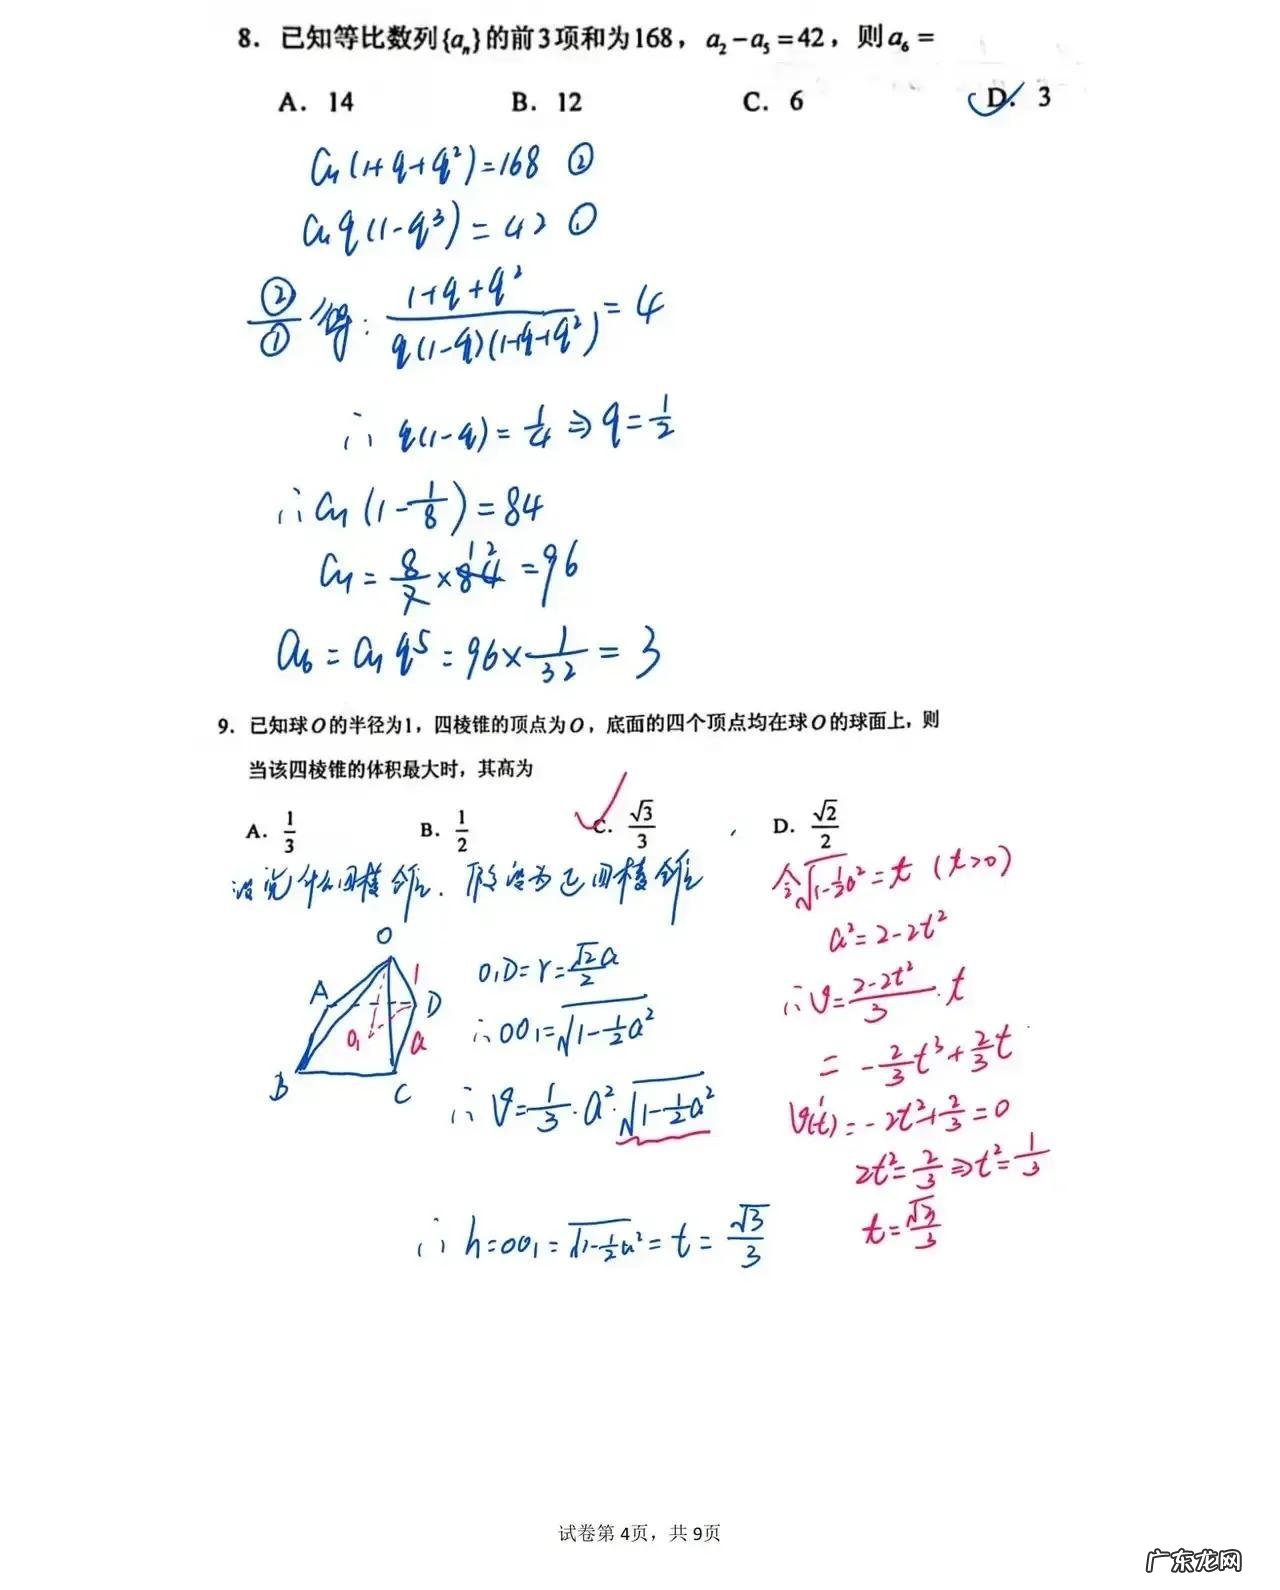 8. 已知等比数列{aₙ}的前3项和为168，a₂-a₅=42，则a₆=
A. 14 B. 12 C. 6 D. 3
a₁(1+q+q²)=168 ②
a₁q(1-q³)=42 ①
②/① 得: (1+q+q²)/(q(1-q)(1+q+q²))=4
∴ q(1-q)=1/4 ⇒ q=1/2
∴ a₁(1-1/8)=84
a₁=8/7×84 12=96
a₆=a₁q⁵=96×1/32=3
9. 已知球O的半径为1，四棱锥的顶点为O，底面的四个顶点均在球O的球面上，则
当该四棱锥的体积最大时，其高为
A. 1/3 B. 1/2 C. √3/3 D. √2/2
没说什么四棱锥. 假设为正四棱锥
O A B C D O₁ 1 a
O₁D=r=√2/2 a
∴OO₁=√(1-1/2a²)
∴ V=1/3·a²·√(1-1/2a²)
令√(1-1/2a²)=t (t>0)
a²=2-2t²
∴V=(2-2t²)/3·t
=-2/3t³+2/3t
V'(t)=-2t²+2/3=0
2t²=2/3⇒t²=1/3
t=√3/3
∴ h=OO₁=√(1-1/2a²)=t=√3/3
试卷第 4页，共 9页
广东龙网